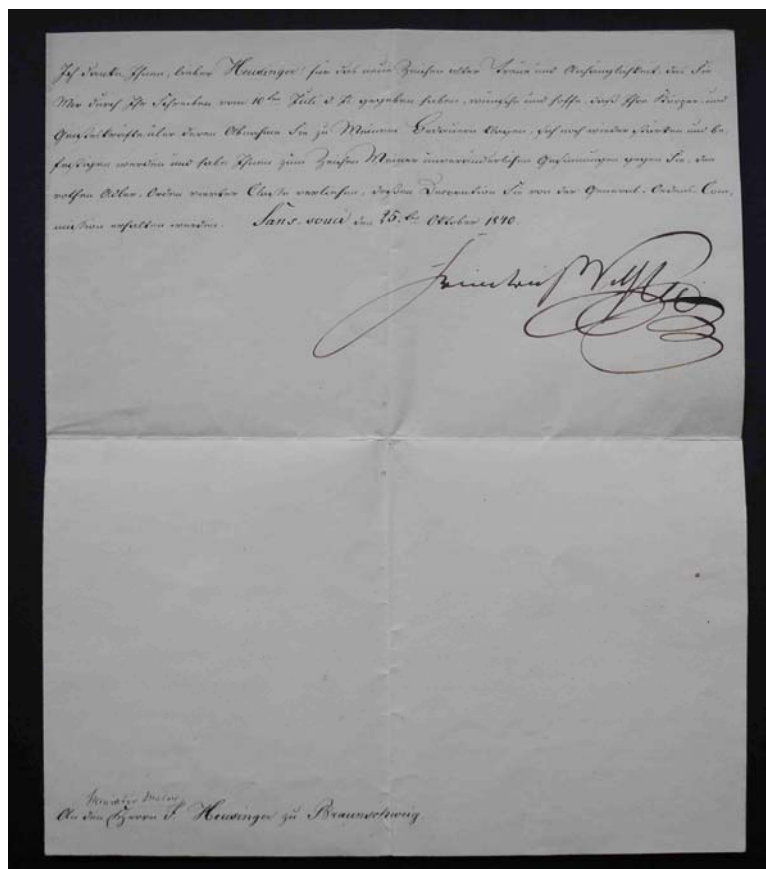 Ich danke Ihnen, lieber Heusinger für das neue Zeichen alter Treue und Anhänglichkeit, das Sie
Mir durch Ihr Schreiben vom 10ten Juli d. J. gegeben haben, wünsche und hoffe, daß Ihre Körper- und
Geisteskräfte über deren Abnahme Sie zu Meinem Bedauern klagen, sich noch wieder stärken und be-
festigen werden und habe Ihnen zum Zeichen Meiner unveränderlichen Gesinnungen gegen Sie, den
rothen Adler-Orden vierter Classe verliehen, dessen Decoration Sie von der General-Ordens-Com-
mission erhalten werden. Sans-souci den 15ten Oktober 1840.
Friedrich Wilhelm
An den Herrn F. Heusinger zu Braunschweig